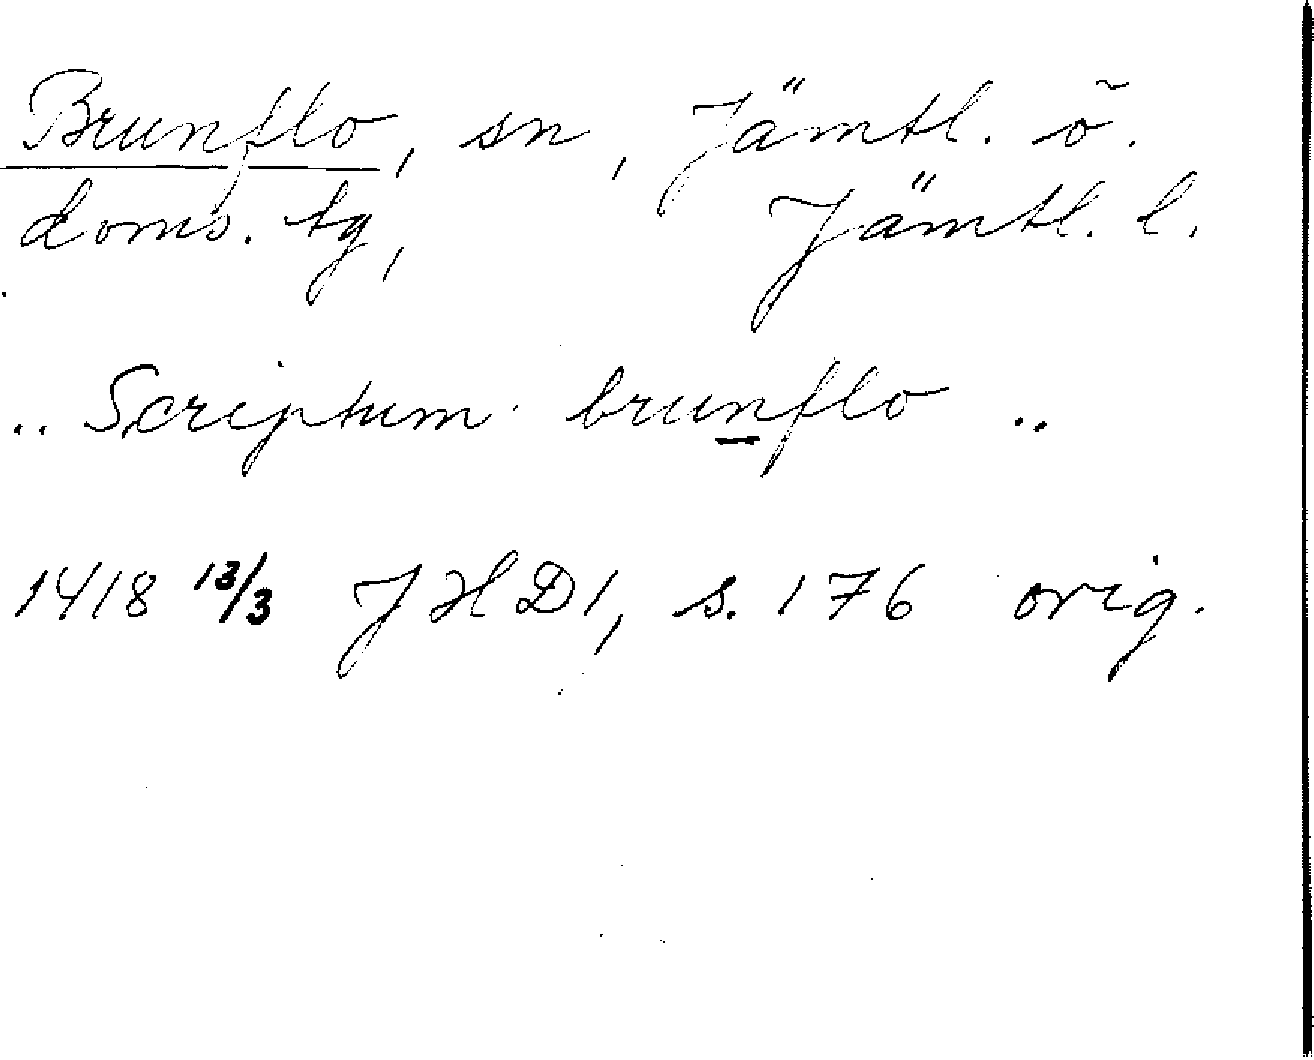 Brunflo, sn, Jämtl. ö.
doms. tg, Jämtl. l.
.. Scriptum brunflo ..
1418 13/3 JHD1, s. 176 orig.